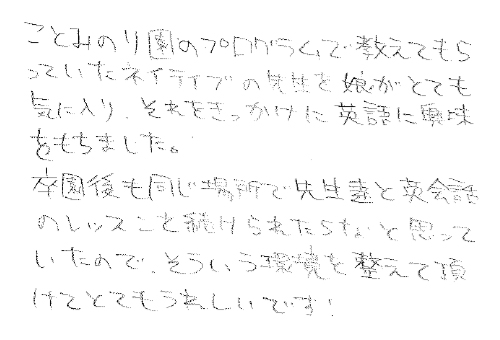 ことみのり園のプログラムで教えてもら
っていたネイティブの先生を娘がとても
気に入り、それをきっかけに英語に興味
をもちました。
卒園後も同じ場所で先生達と英会話
のレッスンを続けられたらなと思って
いたので、そういう環境を整えて頂
けてとてもうれしいです!